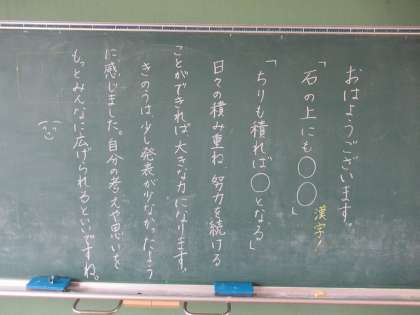 おはようございます。
「石の上にも〇〇」
漢字！
「ちりも積れば〇となる」
日々の積み重ね、努力を続ける
ことができれば、大きな力になります。
きのうは少し発表が少なかったよう
に感じました。自分の考えや思いを
もっとみんなに広げられるといいですね。